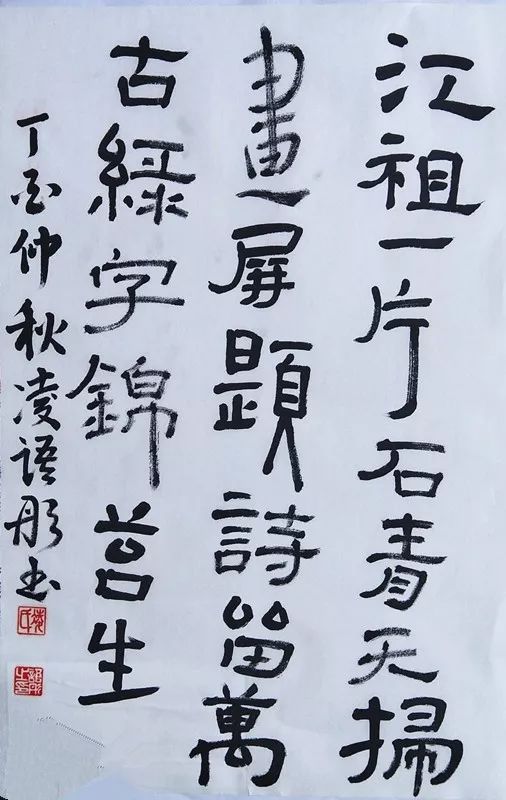 江祖一片石青天掃
畫屏題詩留萬
古綠字錦苔生
丁酉仲秋凌语彤书